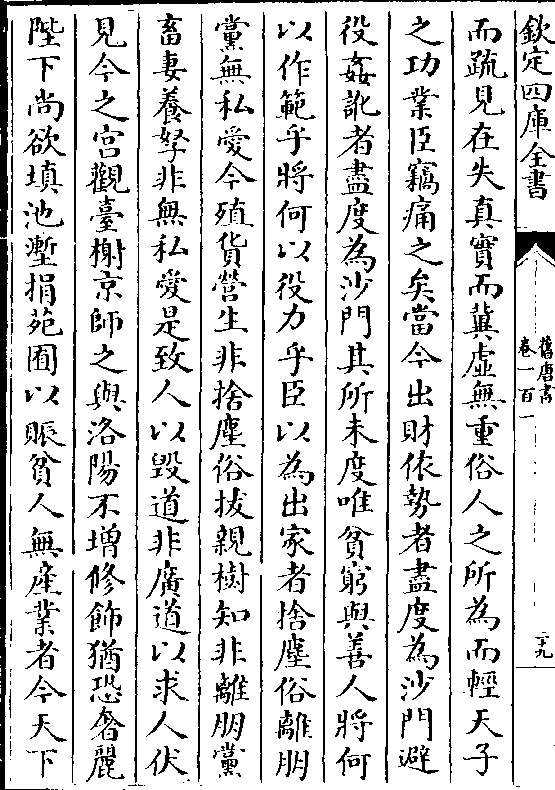 欽定四庫全書
舊唐書
卷一百一
二十九
而疏見在失真實而冀虛無重俗人之所為而輕天子
之功業臣竊痛之矣當今出財依勢者盡度為沙門避
役姦訛者盡度為沙門其所未度唯貧窮與善人將何
以作範乎將何以役力乎臣以為出家者捨塵俗離朋
黨無私愛今殖貨營生非捨塵俗拔親樹知非離朋黨
畜妻養孥非無私愛是致人以毀道非廣道以求人伏
見今之宮觀臺榭京師之與洛陽不增修飾猶恐奢麗
陛下尚欲填池塹捐苑囿以賑貧人無產業者今天下